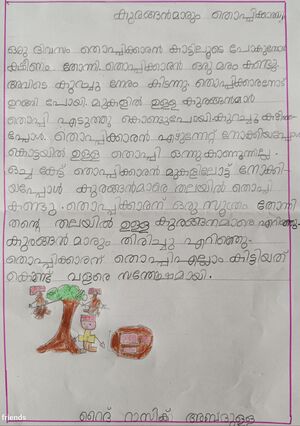 കുരങ്ങൻമാരും തൊപ്പിക്കാരനും
ഒരു ദിവസം തൊപ്പിക്കാരൻ കാട്ടിലൂടെ പോകുമ്പോൾ
ക്ഷീണം തോന്നി. തൊപ്പിക്കാരൻ ഒരു മരം കണ്ടു.
അവിടെ കുറച്ചു നേരം കിടന്നു. തൊപ്പിക്കാരനോട്
ഉറങ്ങി പോയി. മുകളിൽ ഉള്ള കുരങ്ങൻമാർ
തൊപ്പി എടുത്തു കൊണ്ടുപോയി. കുറച്ചു കഴിഞ്ഞ
പ്പോൾ തൊപ്പിക്കാരൻ എഴുന്നേറ്റ് നോക്കിയപ്പോൾ
കൊട്ടയിൽ ഉള്ള തൊപ്പി ഒന്നു കാണുന്നില്ല.
ഒച്ച കേട്ട് തൊപ്പിക്കാരൻ മുകളിലോട്ട് നോക്കി
യപ്പോൾ കുരങ്ങൻമാരുടെ തലയിൽ തൊപ്പി
കണ്ടു. തൊപ്പിക്കാരന് ഒരു സൂത്രം തോന്നി
തന്റെ തലയിൽ ഉള്ള കുരങ്ങന്മാരെ എറിഞ്ഞു.
കുരങ്ങൻ മാരും തിരിച്ചു എറിഞ്ഞു.
തൊപ്പിക്കാരന് തൊപ്പി എല്ലാം കിട്ടിയത്
കൊണ്ട് വളരെ സന്തോഷമായി.
റൈദ് റാസിക് അബദുള്ള
friends